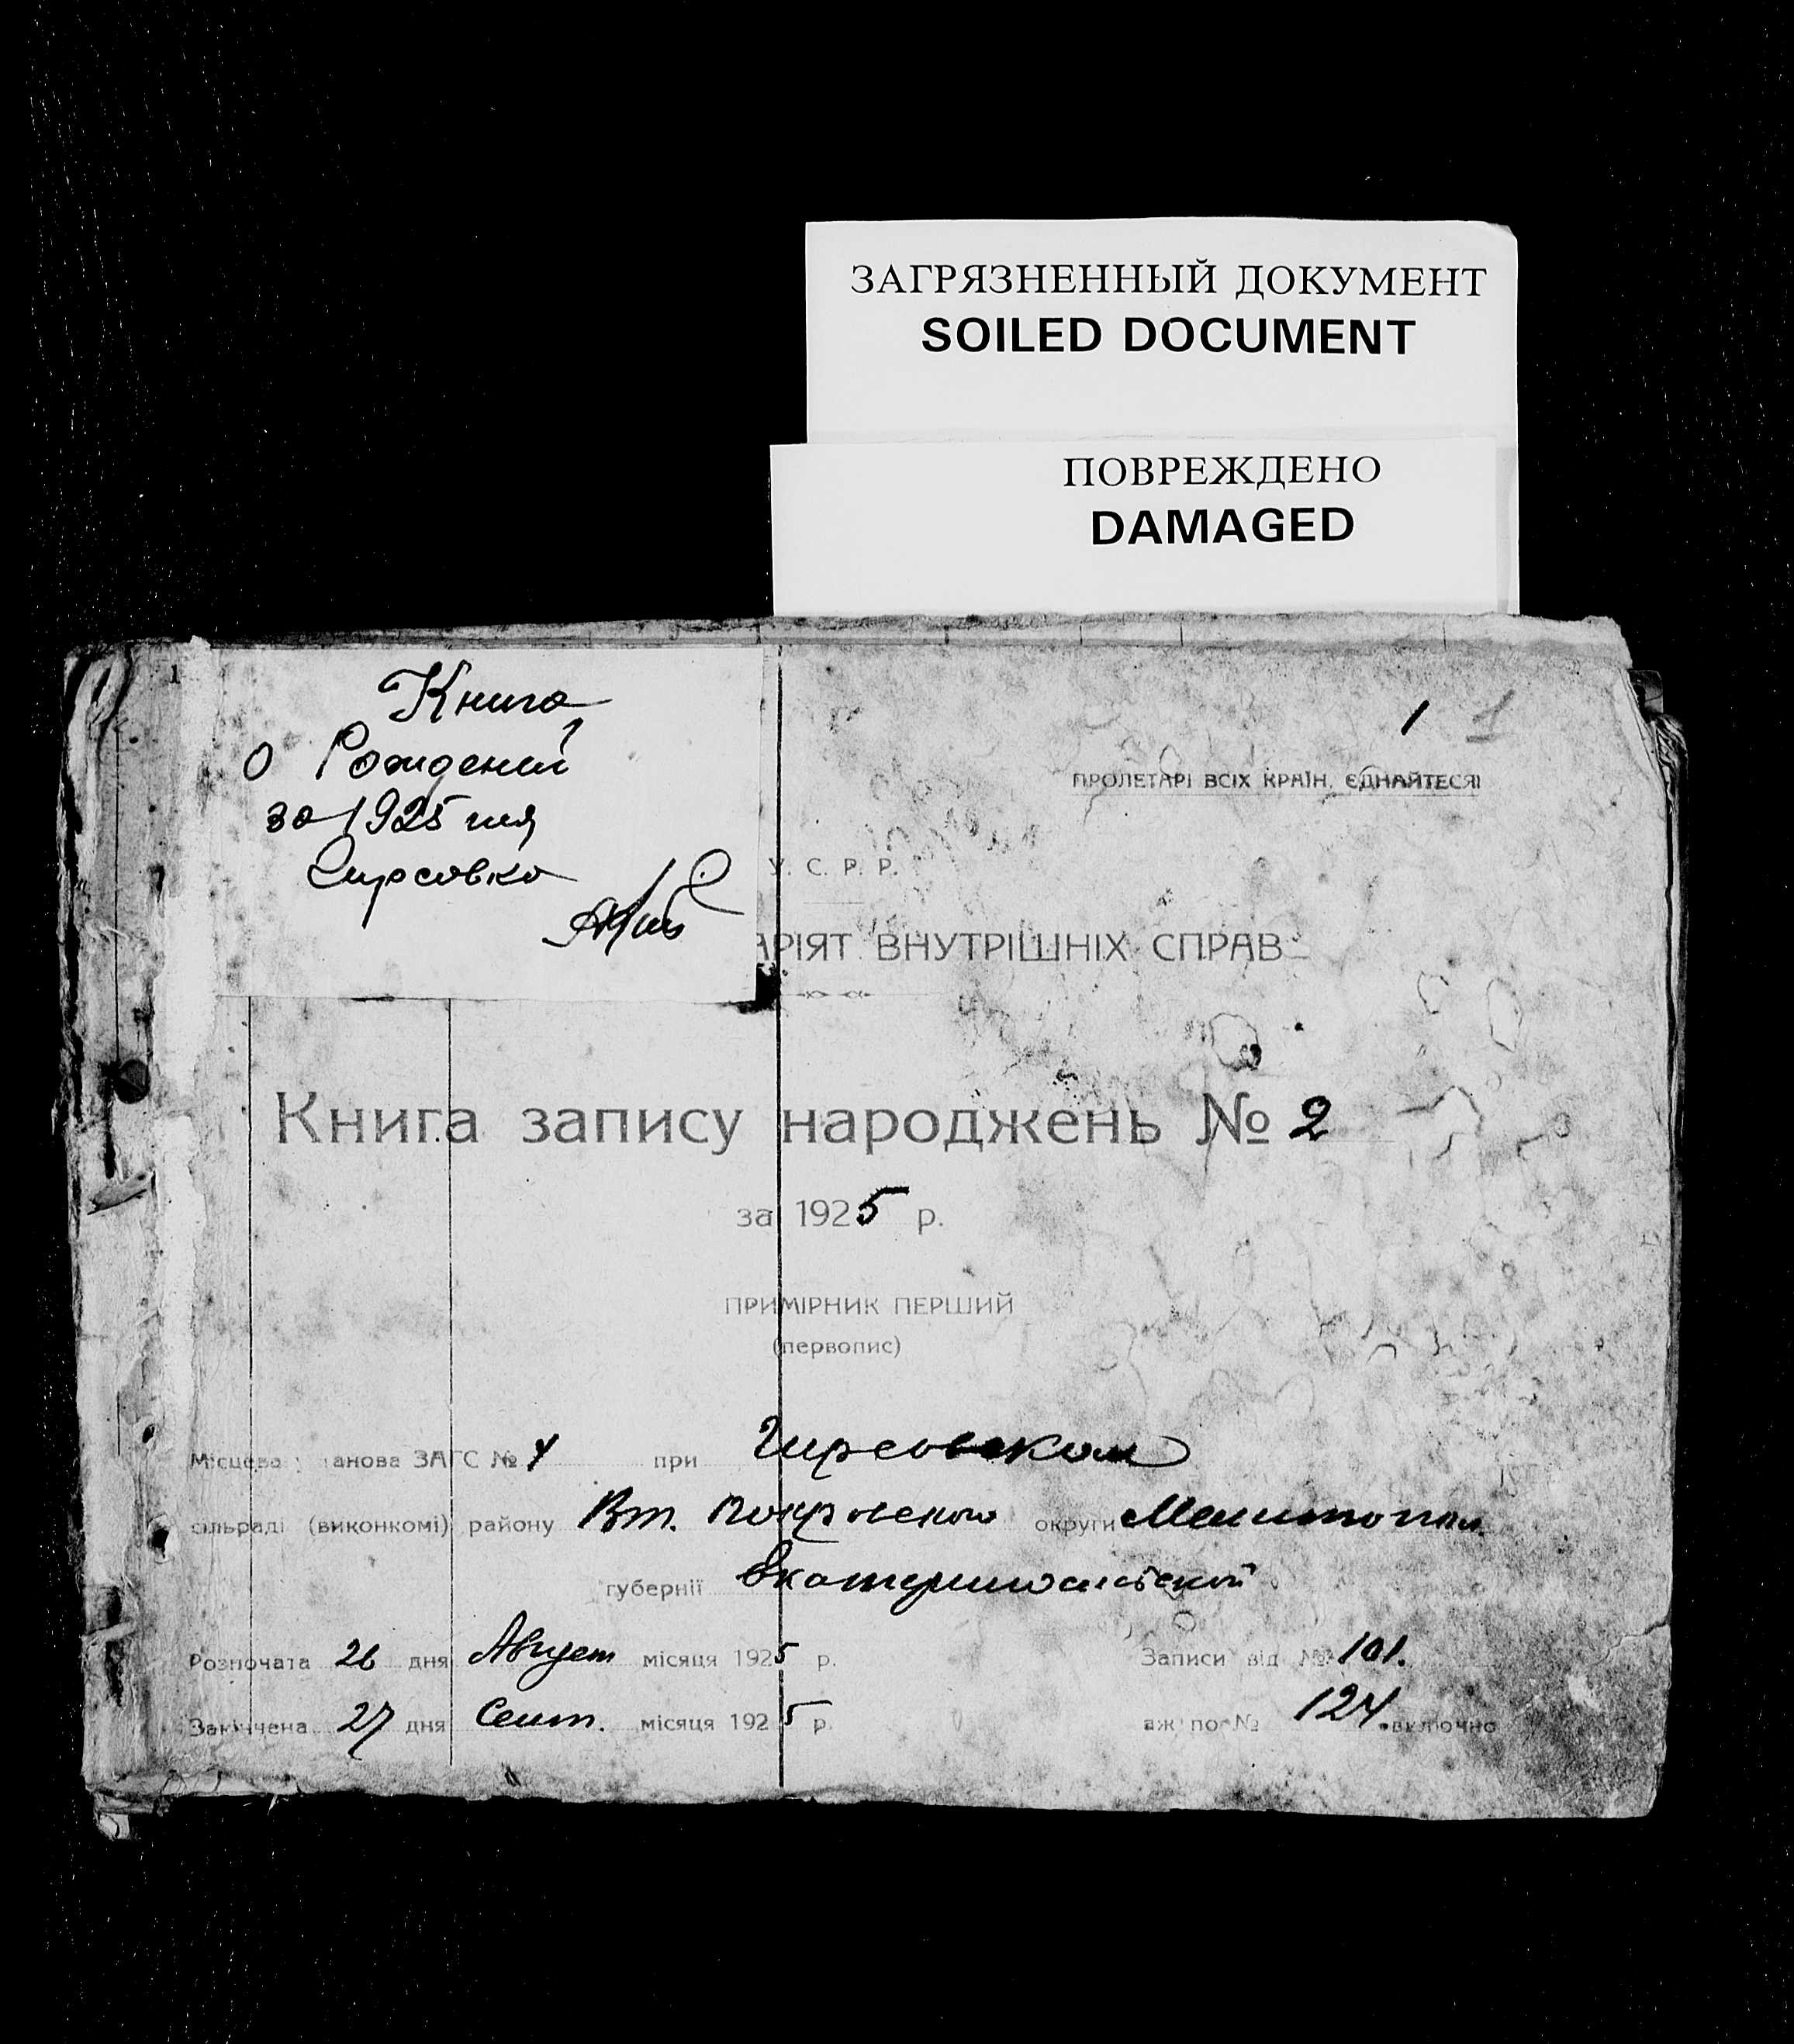 ЗАГРЯЗНЕННЫЙ ДОКУМЕНТ
SOILED DOCUMENT
ПОВРЕЖДЕНО
DAMAGED
Книга
о Рождений
за 1925 г
Гирсовка
1 1
ПРОЛЕТАРІ ВСІХ КРАЇН, ЄДНАЙТЕСЯ!
У. С. Р. Р.
АРІЯТ ВНУТРІШНІХ СПРАВ
Книга запису народжень № 2
за 1925 р.
ПРИМІРНИК ПЕРШИЙ
(первопис)
Місцева анова ЗАГС № 4 при Гирсовском
сільраді (виконкомі) району Вт. Покровского округи Мелитопол
губернії Екатеринославской
Розпочата 26 дня Август місяця 1925 р. Записи від № 101.
Закінчена 27 дня Сент. місяця 1925 р. аж по № 124 включно